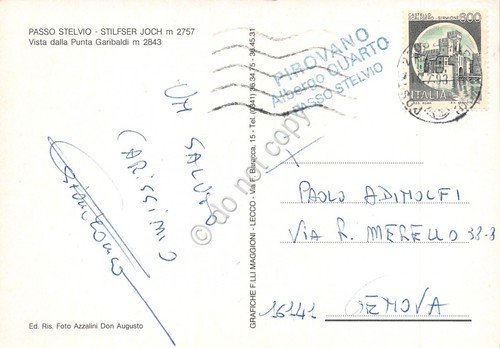 PASSO STELVIO - STILFSER JOCH m 2757
Vista dalla Punta Garibaldi m 2843
PIROVANO
Albergo QUARTO
PASSO STELVIO
600
ITALIA
UN SALUTO
CARISSIMO
GRAFICHE F.LLI MAGGIONI - LECCO - Via F. Baracca, 15 - Tel. (0341) 36.34.75 - 36.45.31
do not copy
PAOLO ADIMOLFI
VIA R. MERELLO 38-8
16141
GENOVA
Ed. Ris. Foto Azzalini Don Augusto